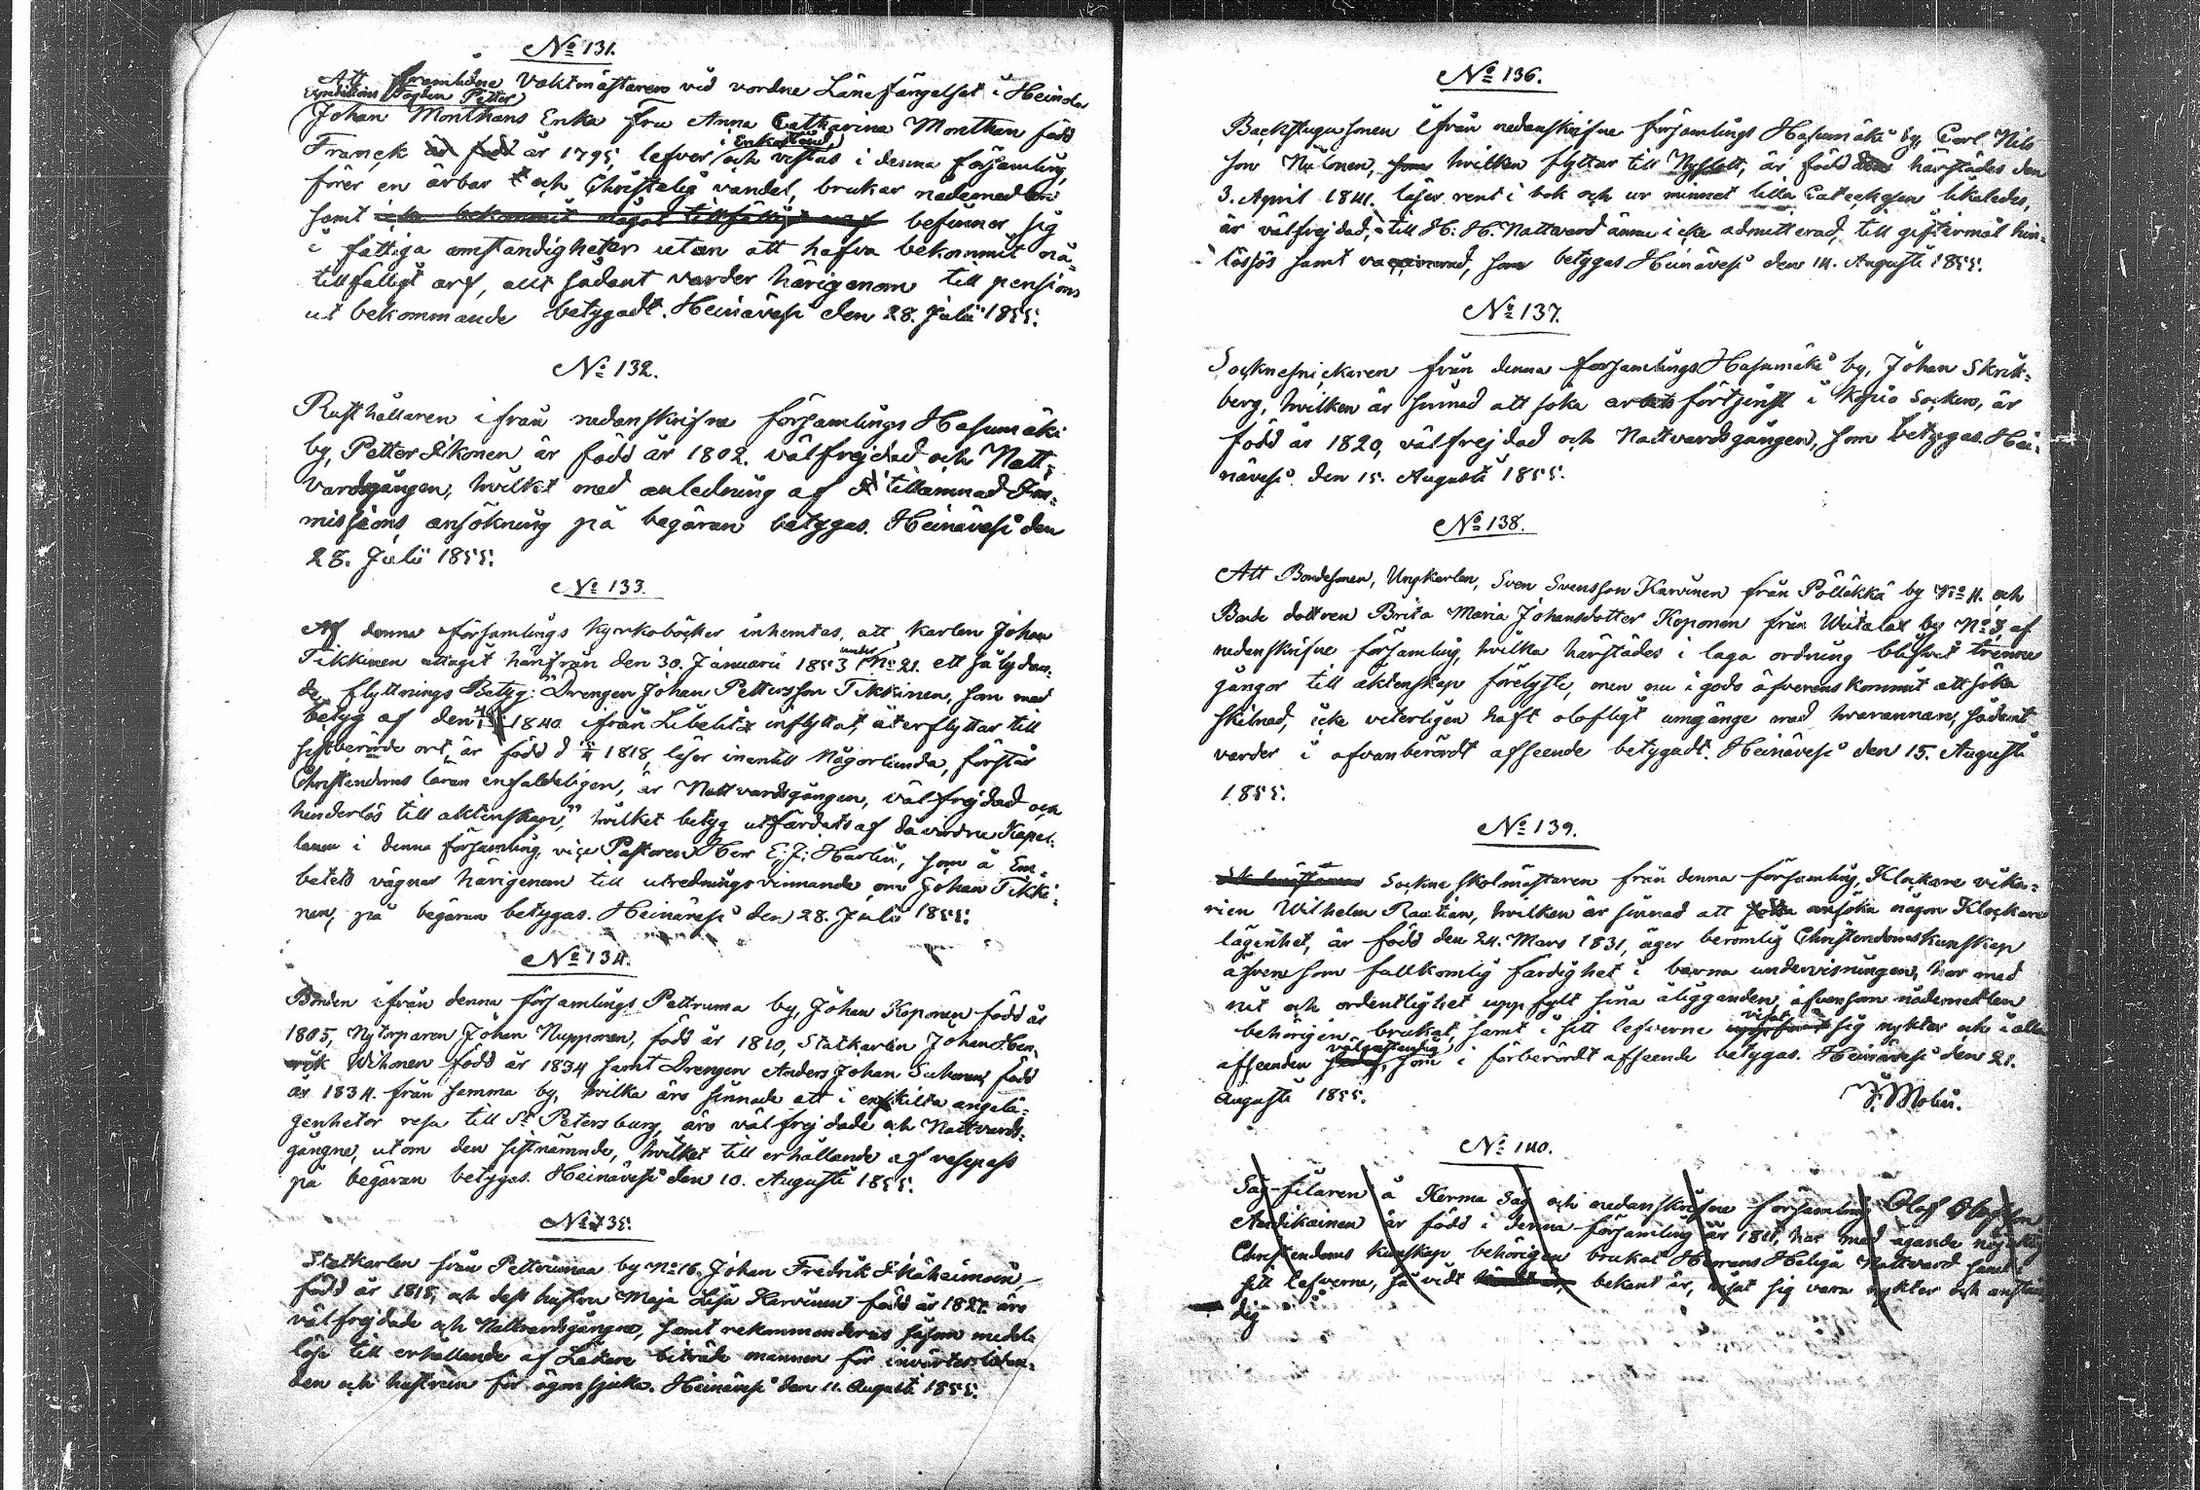 No 131.
Att framledne Vaktmästaren vid vordne Länefängelset i Heinola
Expeditions Fogden Petter
Johan Monthans Enka Fru Anna Catharina Monthan född
Franck är född år 1795 lefver i Enkestånd och vistas i denna församling,
förer en ärbar och Christelig vandel, brukar nådemedlen
samt icke bekommit något tillfälligt arf befinner sig
i fattiga omständigheter utan att hafva bekommit nå-
tillfälligt arf, allt sådant varder härigenom till pensions
ut bekommande betygadt. Heinävesi den 28. Julii 1855.
No 132.
Rusthållaren ifrån nedanskrifne församlings Hasumäki
by, Petter Ikonen är född år 1802. välfrejdad och Natt-
vardsgången, hvilket med anledning af tillämnad
missions ansökning på begäran betygas. Heinävesi den
28. Julii 1855.
No 133.
Af denna församlings Kyrkoböcker inhemtas, att Karlen Johan
Tikkinen uttagit härifrån den 30. Januarii 1853 under No 21. ett så lydan-
de flyttnings Betyg: "Drengen Johan Pettersson Tikkinen, som med
betyg af den 1840 ifrån Libelitz inflyttat, återflyttar till
sistberörde ort, är född d 1818, läser innantill Någorlunda, förstår
Christendoms läran enfaldeligen, är Nattvardsgången, välfrejdad och
hinderlös till äktenskap," hvilket betyg utfärdats af då vordne Kapel-
lanen i denna församling, vice Pastoren Herr E: J: Harlin, som å Em-
betets vägnar härigenom till utrednings vinnande om Johan Tikki-
nen, på begäran betygas. Heinävesi den 28. Julii 1855.
No 134.
Bonden ifrån denna församlings Pettruma by, Johan Koponen född år
1805, Nytorparen Johan Nupponen, född år 1810, Statkarlen Johan Hen-
rik Wihonen född år 1834 samt Drengen Anders Johan Suhonen född
år 1834. från samma by, hvilka äro sinnade att i enskilta angelä-
genheter resa till St Petersburg, äro välfrejdade och Nattvards-
gångne, utom den sistnämnde, hvilket till erhållande af respass
på begäran betygas. Heinävesi den 10. Augusti 1855.
No 135.
Statkarlen från Pettrumaa by No 16. Johan Fredrik Ikäheimoin
född år 1818, och dess hustru Maja Lisa Karvinen född år 1827. äro
välfrejdade och Nattvardsgångne, samt rekommenderas såsom medel-
löse till erhållande af Läkare biträde mannen för invärtes lidan-
den och hustrun för ögonsjuka. Heinävesi den 11. Augusti 1855.
No 136.
Backstugusonen ifrån nedanskrifne församlings Hasumäki by, Carl Nils
son Nülonen, som hvilken flyttar till Nyslott, är född härstädes den
3. April 1841. läser rent i bok och ur minnet lilla Catechesen likaledes,
är välfrejdad, till H: H. Nattvard ännu icke admitterad, till giftermål hin-
derlös samt vaccinerad, som betygas Heinävesi den 14. Augusti 1855.
No 137.
Socknesnickaren från denna församlings Hasumäki by, Johan Skrik-
berg, hvilken är sinnad att söka arbets förtjenst i Kopio Socken, är
född år 1820, välfrejdad och Nattvardsgången, som betygas. Hei-
nävesi den 15. Augusti 1855.
No 138.
Att Bondesonen, Ungkarlen, Sven Svensson Karvinen från Pölläkkä by No 4. och
Bonde dottren Brita Maria Johansdotter Koponen från Wiitalax by No 3 af
nedanskrifne församling, hvilka härstädes i laga ordning blifvit trenne
gångor till äktenskap förelyste, men nu i godo öfverenskommit att söka
skilnad, icke veterligen haft olofligt umgänge med hvarannan, sådant
varder i ofvanberördt afseende betygadt. Heinävesi den 15. Augusti
1855.
No 139.
Sockne skolmästaren från denna församling, Klockare vika-
rien Wilhelm Rautian, hvilken är sinnad att söka ansöka någon Klockare
lägenhet, är född den 24. Mars 1831, äger berömlig Christendoms kunskap
äfvensom fullkomlig färdighet i barna undervisningen, har med
nit och ordentlighet uppfylt sina åligganden, äfvensom nådemedlen
behörigen brukat, samt i sitt lefverne visat sig nykter och i alla
afseenden välanständig, som i förberördt afseende betygas. Heinävesi den 21.
Augusti 1855.
J. Molin.
No 140.
Såg-filaren å Kerma Såg och nedanskrifne församling Olof Olofsson
Nardikainen är född i denna församling år 1811, har med ägande nöjaktig
Christendoms kunskap behörigen brukat Herrans Heliga Nattvard samt
sitt lefverne, så vidt bekant är, visat sig vara nykter och anstän-
dig